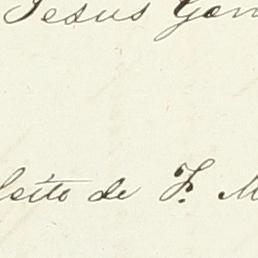 Jesus Gon
feito de F. M